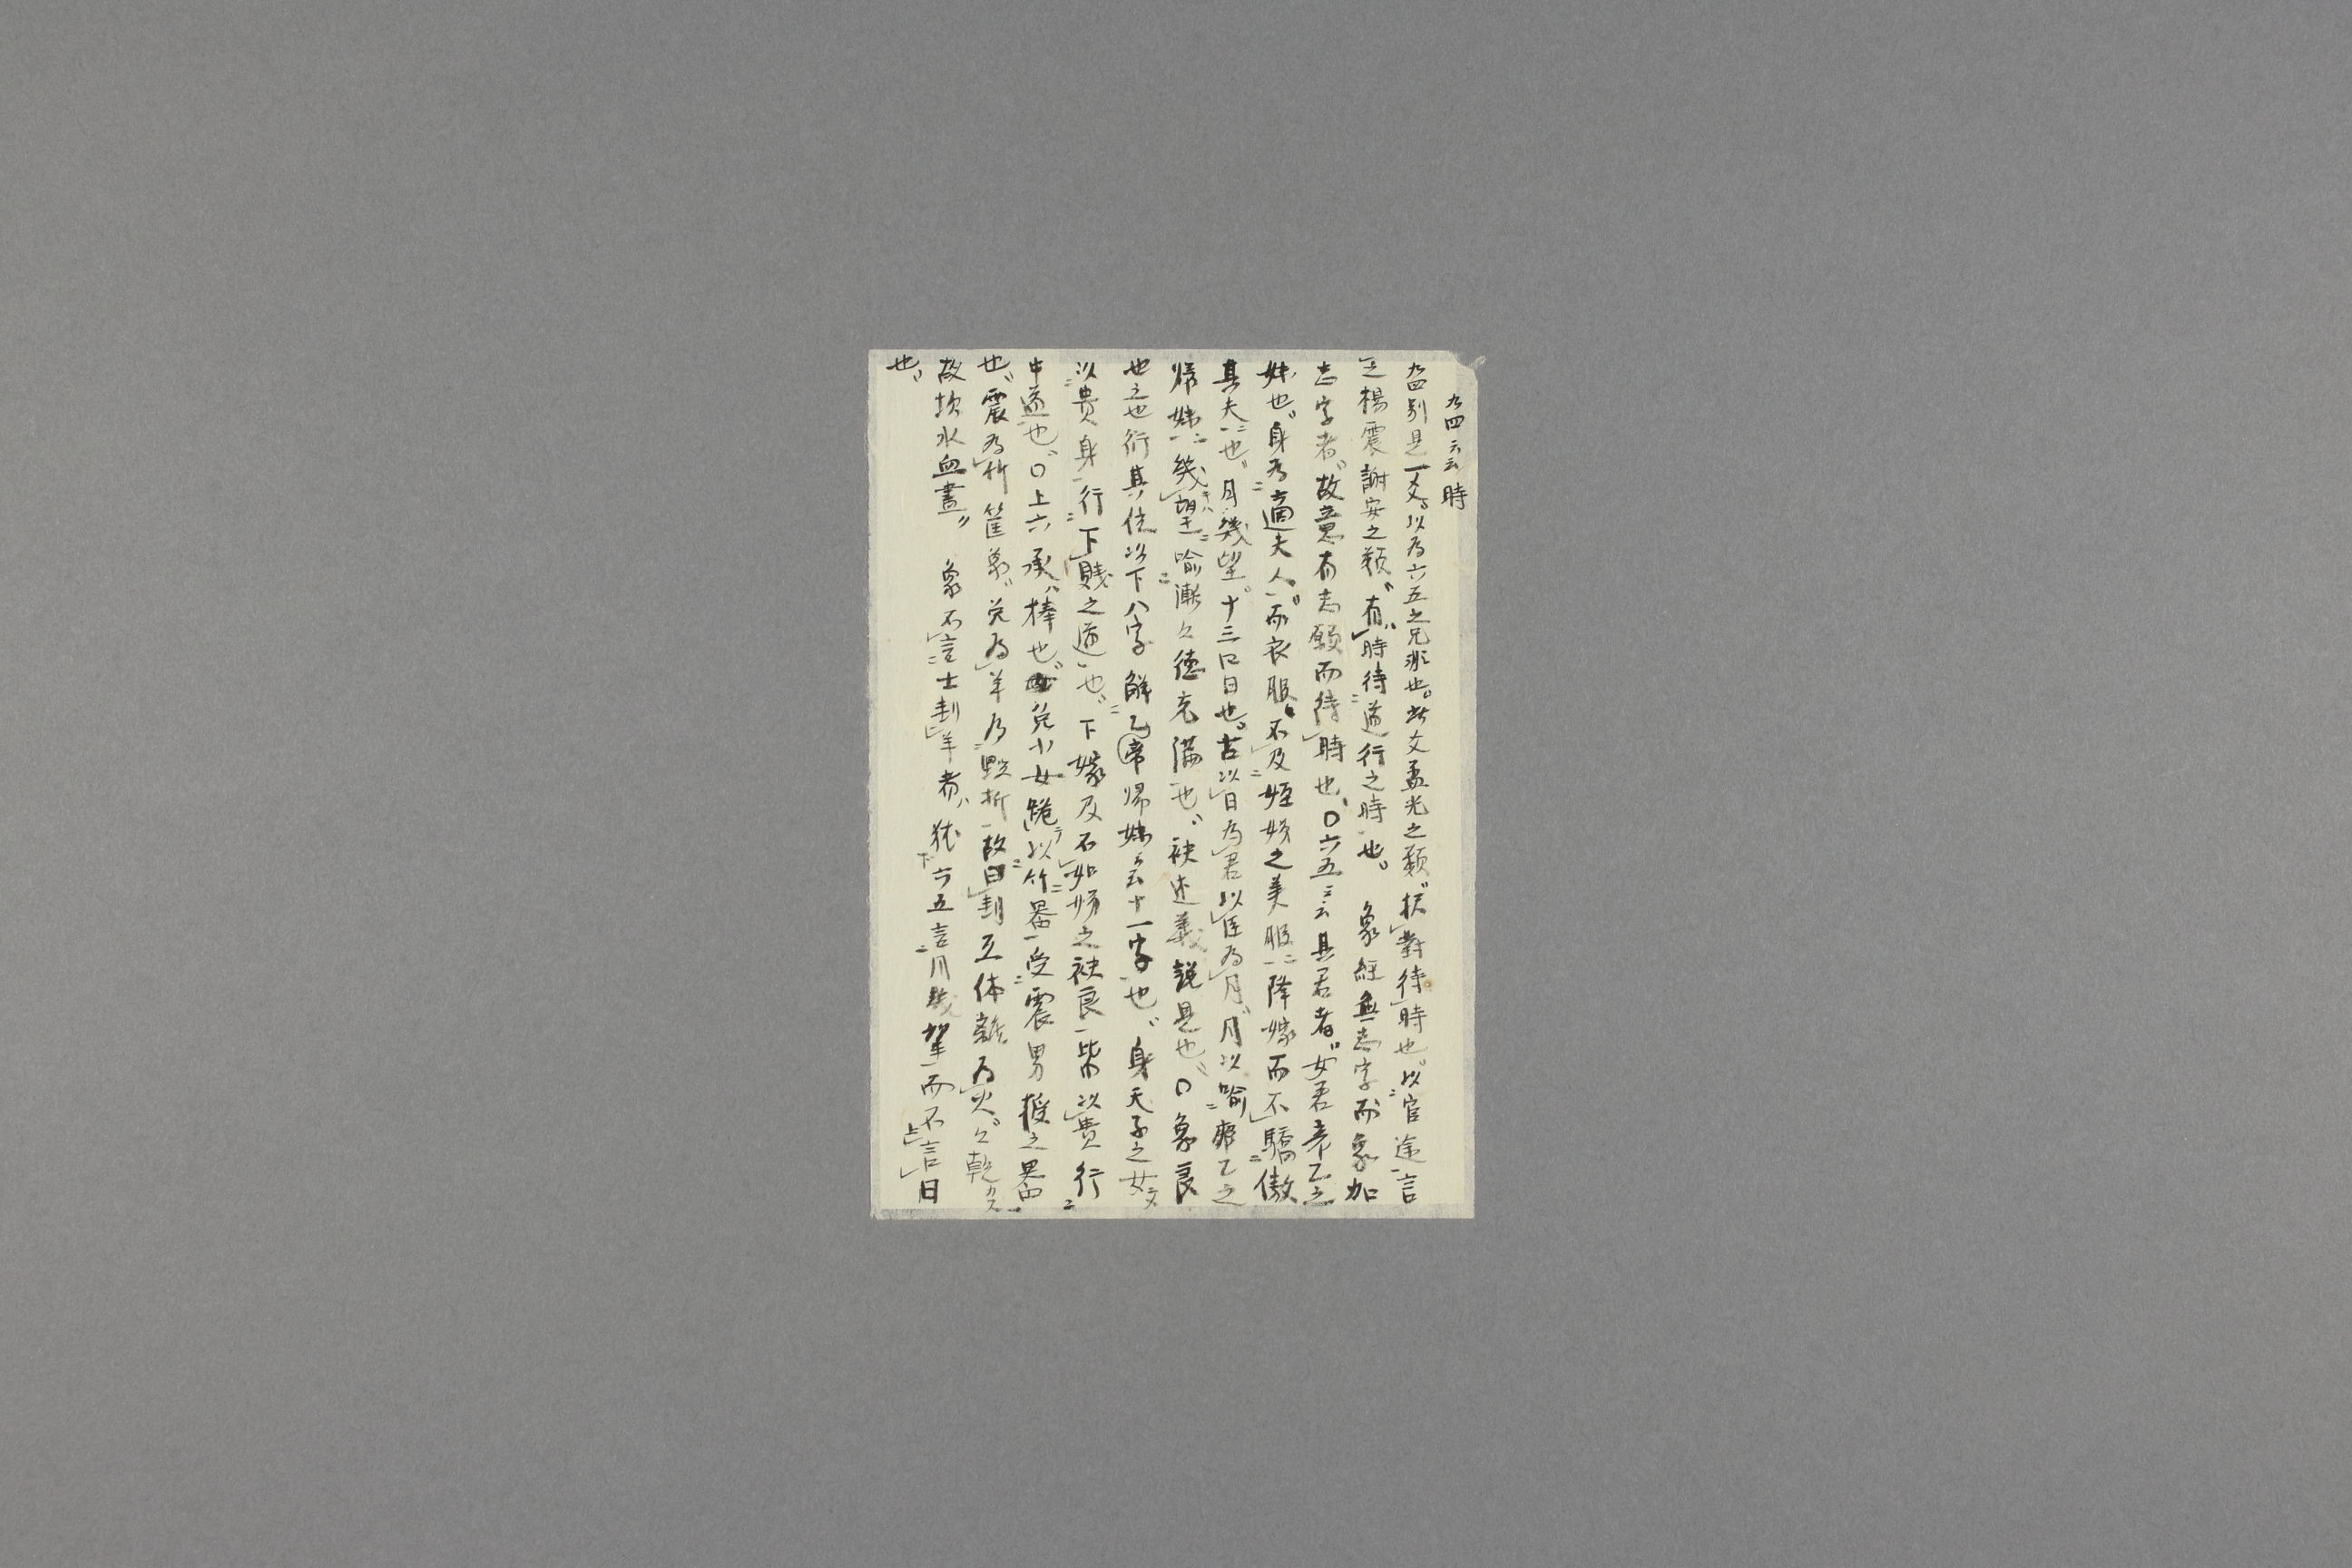 九四云云時
九四別是一爻。以為六五之兄非也。此文孟光之類。於對待時也。以官途言
之楊震謝安之類。有時待道行之時也。象經無志字而象加
志字者。故意有志願而待時也。〇六五云云其君者。女君帝乙之
妹也。身為適夫人。而衣服不及姪娣之美服降嫁而不驕傲
其夫也。月幾望。十三四日也。古以日為君以臣為月。月以喻帝乙之
帰妹。幾望喻漸々德充満也。袂述義説是也。〇象良
也之也衍其位以下八字解乙帝帰妹云云十一字也。身天子之女
以貴身行下賎之道也。下嫁及不如娣之袂良皆以貴行
中道也。〇上六承捧也。兌少女跪以竹器受震男授之果
也。震為竹筐象。兌為羊為毀折故曰刲互体離為火々乾
故坎水血盡。象不言士刲羊者。猶六五言月幾望而不言日
也。